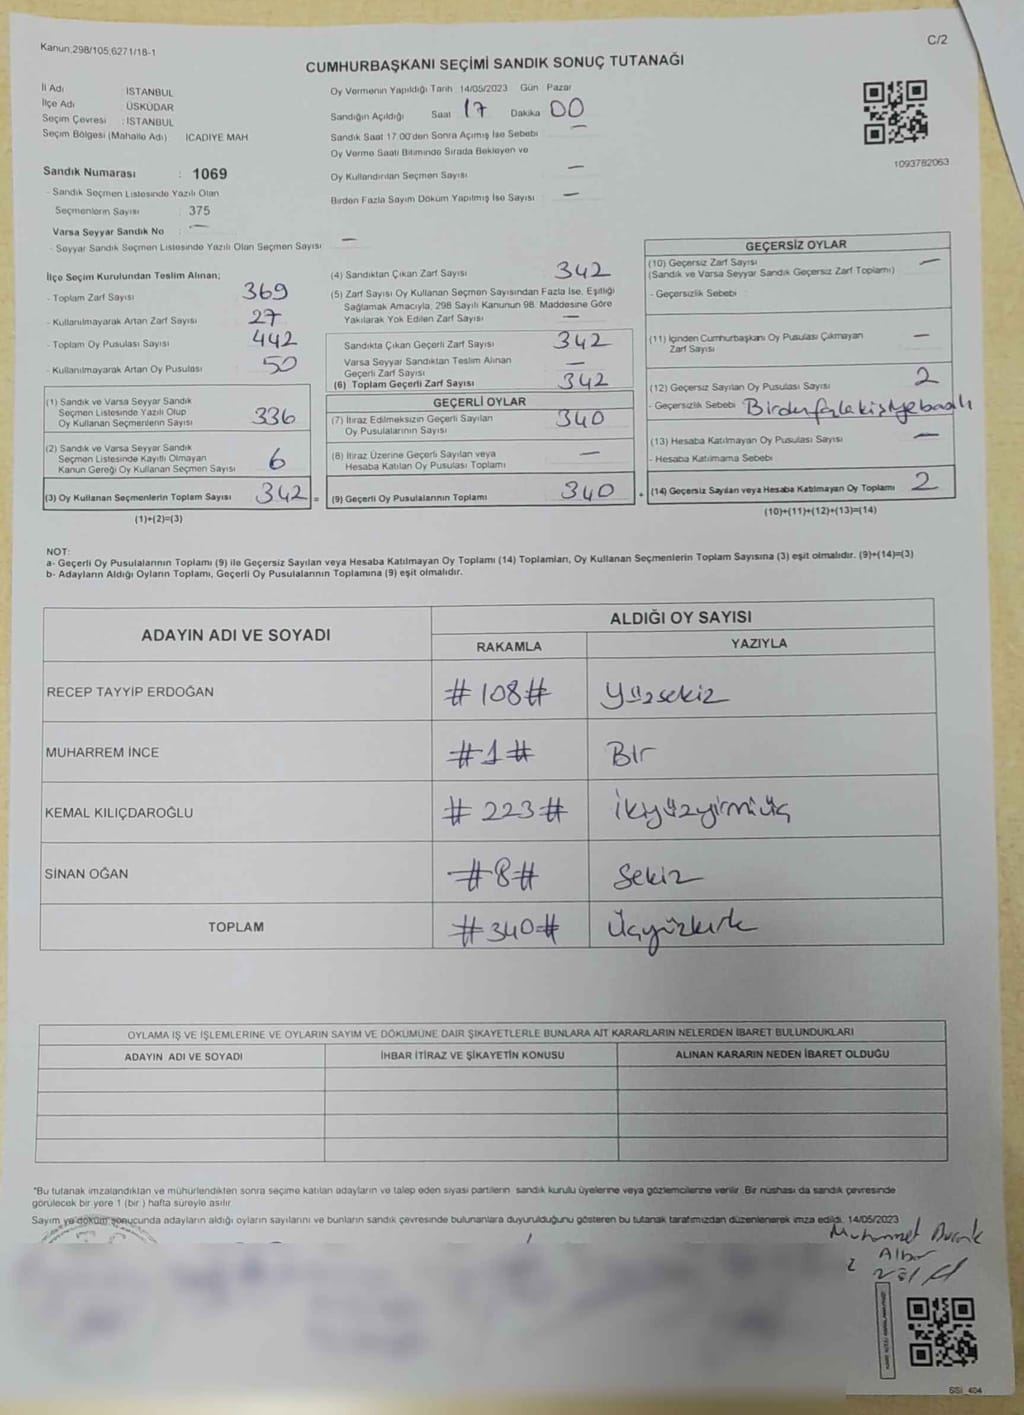 Kanun;298/105,6271/18-1
C/2
CUMHURBAŞKANI SEÇİMİ SANDIK SONUÇ TUTANAĞI
İl Adı : İSTANBUL
İlçe Adı : ÜSKÜDAR
Seçim Çevresi : İSTANBUL
Seçim Bölgesi (Mahalle Adı) İCADİYE MAH.
Sandık Numarası : 1069
- Sandık Seçmen Listesinde Yazılı Olan
Seçmenlerin Sayısı 375
Varsa Seyyar Sandık No : —
- Seyyar Sandık Seçmen Listesinde Yazılı Olan Seçmen Sayısı —
Oy Vermenin Yapıldığı Tarih 14/05/2023 Gün Pazar
Sandığın Açıldığı Saat 17 Dakika 00
Sandık Saat 17:00'den Sonra Açımış İse Sebebi —
Oy Verme Saati Bitiminde Sırada Bekleyen ve
Oy Kullandırılan Seçmen Sayısı —
Birden Fazla Sayım Döküm Yapılmış İse Sayısı —
1093782063
İlçe Seçim Kurulundan Teslim Alınan;
- Toplam Zarf Sayısı 369
- Kullanılmayarak Artan Zarf Sayısı 27
- Toplam Oy Pusulası Sayısı 442
- Kullanılmayarak Artan Oy Pusulası 50
(1) Sandık ve Varsa Seyyar Sandık
Seçmen Listesinde Yazılı Olup
Oy Kullanan Seçmenlerin Sayısı 336
(2) Sandık ve Varsa Seyyar Sandık
Seçmen Listesinde Kayıtlı Olmayan
Kanun Gereği Oy Kullanan Seçmen Sayısı 6
(3) Oy Kullanan Seçmenlerin Toplam Sayısı 342 =
(1)+(2)=(3)
(4) Sandıktan Çıkan Zarf Sayısı 342
(5) Zarf Sayısı Oy Kullanan Seçmen Sayısından Fazla İse, Eşitliği
Sağlamak Amacıyla, 298 Sayılı Kanunun 98. Maddesine Göre
Yakılarak Yok Edilen Zarf Sayısı —
Sandıkta Çıkan Geçerli Zarf Sayısı 342
Varsa Seyyar Sandıktan Teslim Alınan
Geçerli Zarf Sayısı —
(6) Toplam Geçerli Zarf Sayısı 342
GEÇERLİ OYLAR
(7) İtiraz Edilmeksizin Geçerli Sayılan
Oy Pusulalarının Sayısı 340
(8) İtiraz Üzerine Geçerli Sayılan veya
Hesaba Katılan Oy Pusulası Toplamı —
(9) Geçerli Oy Pusulalarının Toplamı 340 +
GEÇERSİZ OYLAR
(10) Geçersiz Zarf Sayısı —
(Sandık ve Varsa Seyyar Sandık Geçersiz Zarf Toplamı)
- Geçersizlik Sebebi :
(11) İçinden Cumhurbaşkanı Oy Pusulası Çıkmayan
Zarf Sayısı —
(12) Geçersiz Sayılan Oy Pusulası Sayısı 2
- Geçersizlik Sebebi Birden fazla kişiye basılı
(13) Hesaba Katılmayan Oy Pusulası Sayısı —
- Hesaba Katılmama Sebebi
(14) Geçersiz Sayılan veya Hesaba Katılmayan Oy Toplamı 2
(10)+(11)+(12)+(13)=(14)
NOT:
a- Geçerli Oy Pusulalarının Toplamı (9) ile Geçersiz Sayılan veya Hesaba Katılmayan Oy Toplamı (14) Toplamları, Oy Kullanan Seçmenlerin Toplam Sayısına (3) eşit olmalıdır. (9)+(14)=(3)
b- Adayların Aldığı Oyların Toplamı, Geçerli Oy Pusulalarının Toplamına (9) eşit olmalıdır.
ADAYIN ADI VE SOYADI ALDIĞI OY SAYISI
RAKAMLA YAZIYLA
RECEP TAYYİP ERDOĞAN #108# Yüzsekiz
MUHARREM İNCE #1# Bir
KEMAL KILIÇDAROĞLU #223# İkiyüzyirmiüç
SİNAN OĞAN #8# Sekiz
TOPLAM #340# Üçyüzkırk
OYLAMA İŞ VE İŞLEMLERİNE VE OYLARIN SAYIM VE DÖKÜMÜNE DAİR ŞİKAYETLERLE BUNLARA AİT KARARLARIN NELERDEN İBARET BULUNDUKLARI
ADAYIN ADI VE SOYADI İHBAR İTİRAZ VE ŞİKAYETİN KONUSU ALINAN KARARIN NEDEN İBARET OLDUĞU
*Bu tutanak imzalandıktan ve mühürlendikten sonra seçime katılan adayların ve talep eden siyasi partilerin sandık kurulu üyelerine veya gözlemcilerine verilir. Bir nüshası da sandık çevresinde
görülecek bir yere 1 (bir ) hafta süreyle asılır.
Sayım ve döküm sonucunda adayların aldığı oyların sayılarını ve bunların sandık çevresinde bulunanlara duyurulduğunu gösteren bu tutanak tarafımızdan düzenlenerek imza edildi. 14/05/2023
SSİ_404